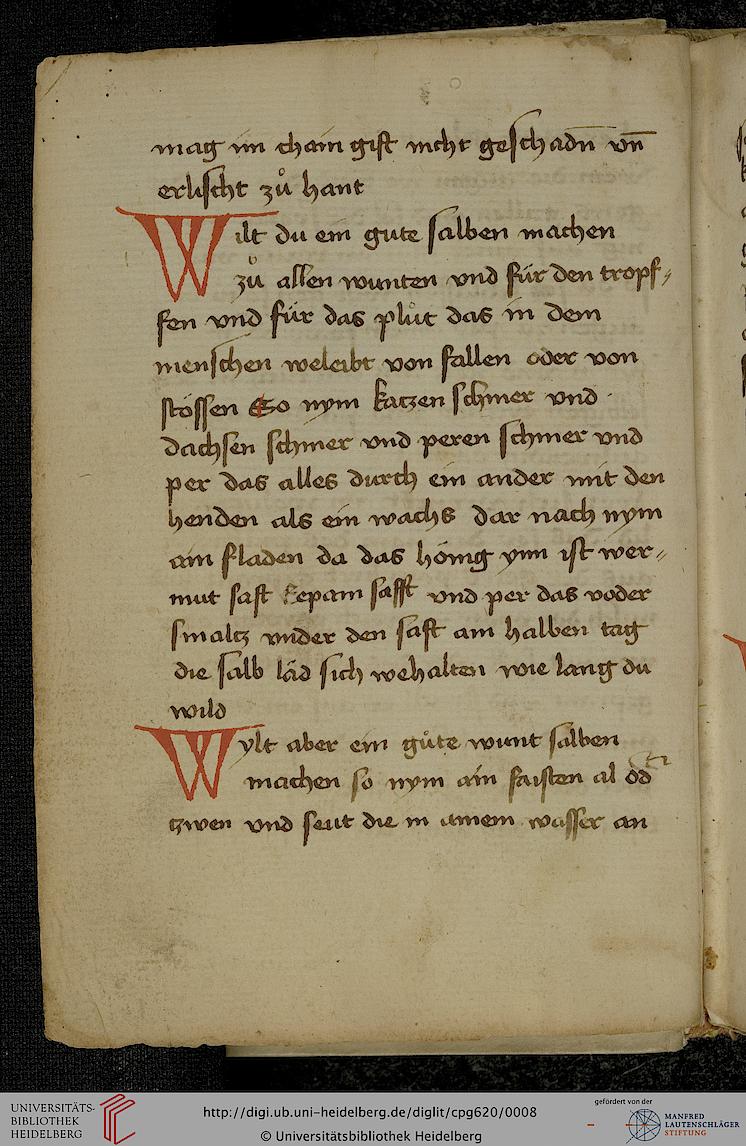 mag im chain gift nicht geschadn̄ vn̄
erlischt zů hant
Wilt du ein gute salben machen
zů allen wunten vnd für den tropf„
fen vnd für das plůt das in dem
menschen weleibt von fallen oder von
stössen So nym katzen schmer vnd
dachsen schmer vnd peren schmer vnd
per das alles durch ein ander mit den
henden als ein wachs dar nach nym
ain fladen da das hönig ynn ist wer„
mut saft Sepam safft vnd per das voder
smaltz vnder den saft am halben tag
die salb läd sich wehalten wie lang du
wild
Wylt aber ein gůte wunt salben
machen so nym ain faisten al od̄er
tzwen vnd seut die in ainem wasser an
UNIVERSITÄTS-
BIBLIOTHEK
HEIDELBERG
http://digi.ub.uni-heidelberg.de/diglit/cpg620/0008
© Universitätsbibliothek Heidelberg
gefördert von der
MANFRED
LAUTENSCHLÄGER
STIFTUNG